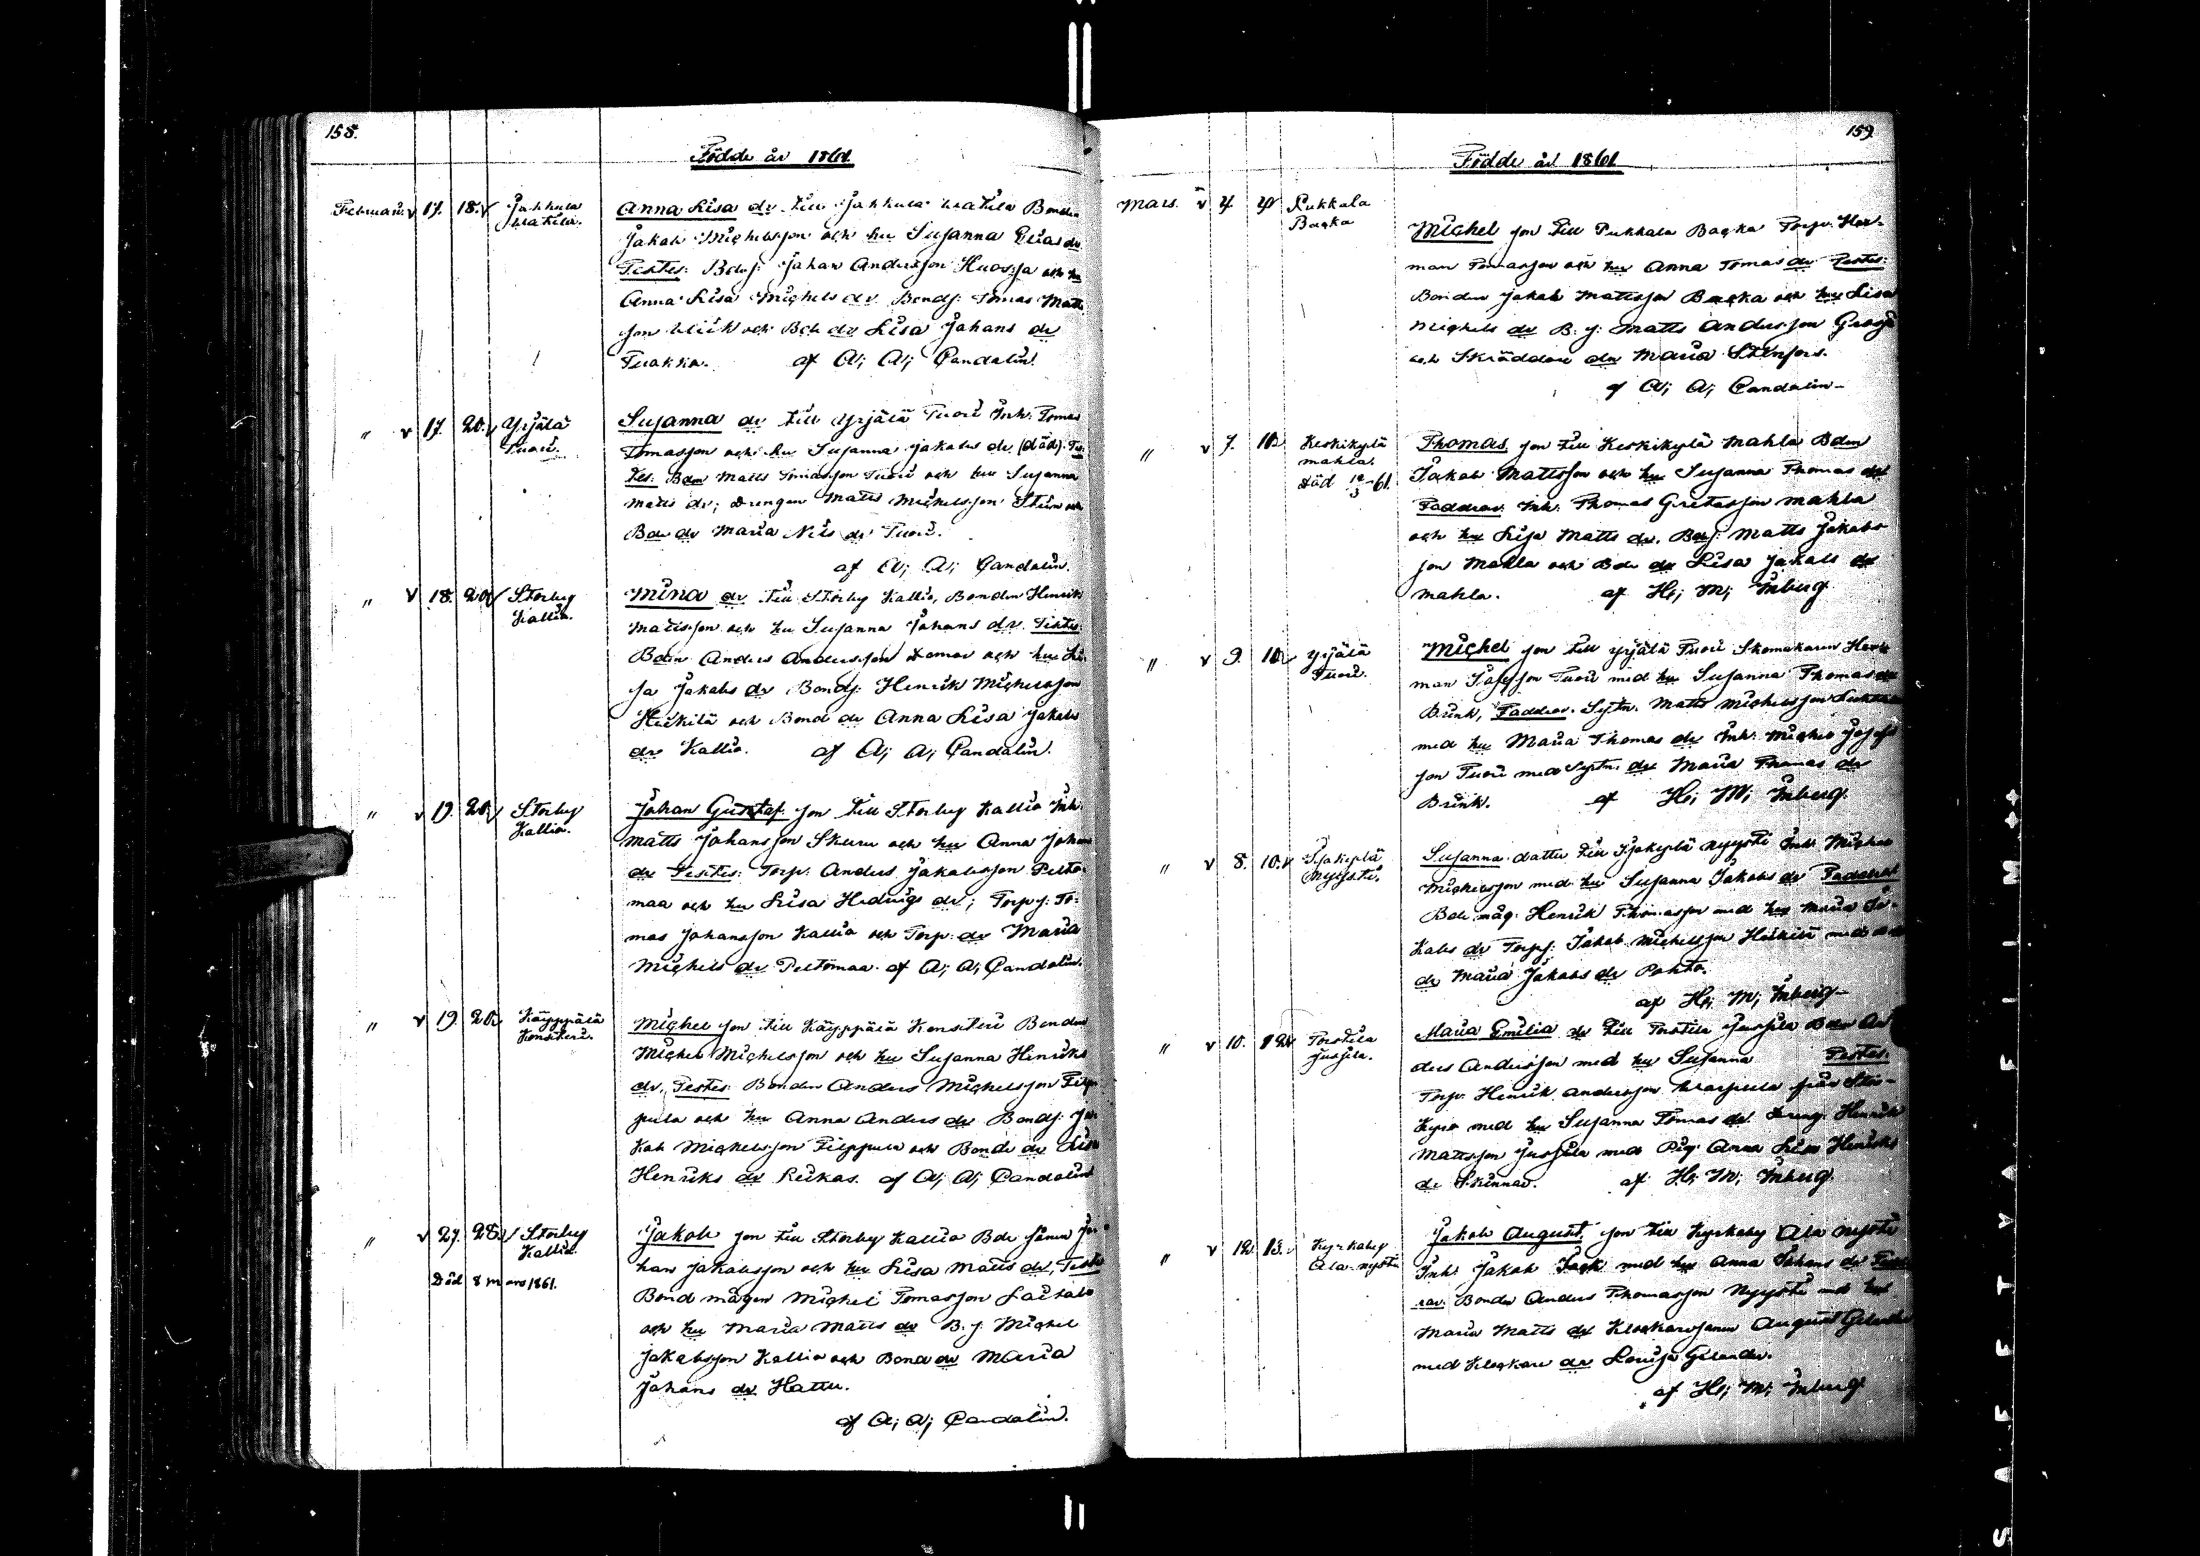 158.
Födde år 1861
Februari. v 17. 18. v Jakkula
Anna Lisa dr till Jakkula Bonden
Jakob Michelsson och hu Susanna Elias dr
Testes: Bdsj: Johan Andersson Huossa och hu
Anna Lisa Michels dr Bondsj: Tomas Matts
son och Bde dr Lisa Johans dr
af A; A; Candolin.
" v 17. 20. v Yrjälä
Tuori.
Susanna dr till Yrjälä Tuori Inh: Tomas
Tomasson och hu Susanna Jakobs dr (död). Tes
tes: Bdn Matts Tomasson Tuori och hu Susanna
Matts dr; Drengen Matts Michelsson och
Bde dr Maria Nils dr Tuori.
af A; A; Candolin.
" v 18. 20. v Storby
Kallio.
Mina dr till Storby Kallio, Bonden Henrik
Mattsson och hu Susanna Johans dr. Testes:
Bdn Anders Andersson och hu Li-
sa Jakobs dr Bondsj: Henrik Michelsson
Heikilä och Bond dr Anna Lisa Jakobs
dr Kallio. af A; A; Candolin.
" v 19. 20. v Storby
Kallio.
Johan Gustaf son till Storby Kallio Inh:
Matts Johansson Skuru och hu Anna Johans
dr Testes: Torp: Anders Jakobsson Pelto-
maa och hu Lisa Hedvigs dr; Torpsj: To-
mas Johansson Kallio och Torp: dr Maria
Michels dr Peltomaa. af A; A; Candolin.
" v 19. 20. v Käyppälä
Konsteri.
Michel son till Käyppälä Konsteri Bonden
Michel Michelsson och hu Susanna Henriks
dr. Testes: Bonden Anders Michelsson Filp-
pula och hu Anna Anders dr Bondsj: Ja-
kob Michelsson Filppula och Bonde dr Lisa
Henriks dr Leikas. af A; A; Candolin
" v 27. 28. v Storby
Kallio
Död 8 mars 1861.
Jakob son till Storby Kallio Bde sonen Jo-
hans Jakobsson och hu Lisa Matts dr, Testes
Bond mågen Michel Tomasson
och hu Maria Matts dr B. s. Michel
Jakobsson Kallio och Bond dr Maria
Johans dr Hattu.
af A; A; Candolin.
159
Födde år 1861
Mars. v 4. 4 Pukkala
Backa
Michel son till Pukkala Backa Torp: Her-
man Tomasson och hu Anna Tomas dr Testes:
Bonden Jakob Mattsson Backa och hu Lisa
Michels dr B. s. Matts Andersson
och Skräddare dr Maria Stenfors.
af A; A; Candolin
" v 7. 10. Keskikylä
Mahla.
död 12/3 61.
Thomas son till Keskikylä Mahla Bdn
Jakob Mattsson och hu Susanna Thomas dr
Faddrar Inh: Thomas Gretasson Mahla
och hu Lisa Matts dr. Bdsj: Matts Jakobs
son Mahla och Bde dr Lisa Jakobs dr
Mahla. af H; M; Inberg.
" v 9. 10. Yrjälä
Tuori.
Michel son till Yrjälä Tuori Skomakaren Her-
man Tuori med hu Susanna Thomas dr
Brink, Faddrar. Sytn. Matts Michelsson
med hu Maria Thomas dr Inh: Michel Josefs
son Tuori med Sytn. dr Maria Thomas dr
Brink. af H; M; Inberg.
" v 8. 10. v Isokylä
Nyysti.
Susanna dotter till Isokylä Nyysti Inh: Michel
Michelsson med hu Susanna Jakobs dr Faddrar
Bde måg: Henrik Thomasson med hu Maria Ja-
kobs dr Torpsj: Jakob Michelsson
dr Maria Jakobs dr Pohto.
af H; M; Inberg
" v 10. 12. Torttila
Jussila.
Maria Emilia dr till Torttila Jussila Bdn An-
ders Andersson med hu Susanna Testes:
Torp: Henrik Andersson från Stor-
kyro med hu Susanna Tomas dr Dreng: Henrik
Mattsson Jussila med Pig: Anna Lisa Henriks
dr Skinnar. af H; M; Inberg.
" v 12. 13. Kyrkoby
Ala-nyysti
Jakob August, son till Kyrkoby Ala nyysti
Inh: Jakob med hu Anna Johans dr Fadd-
rar. Bonden Anders Thomasson Nyysti med hu
Maria Matts dr Klockaresonen August Gelander
med Klockare dr Lovisa Gelander.
af H; M; Inberg